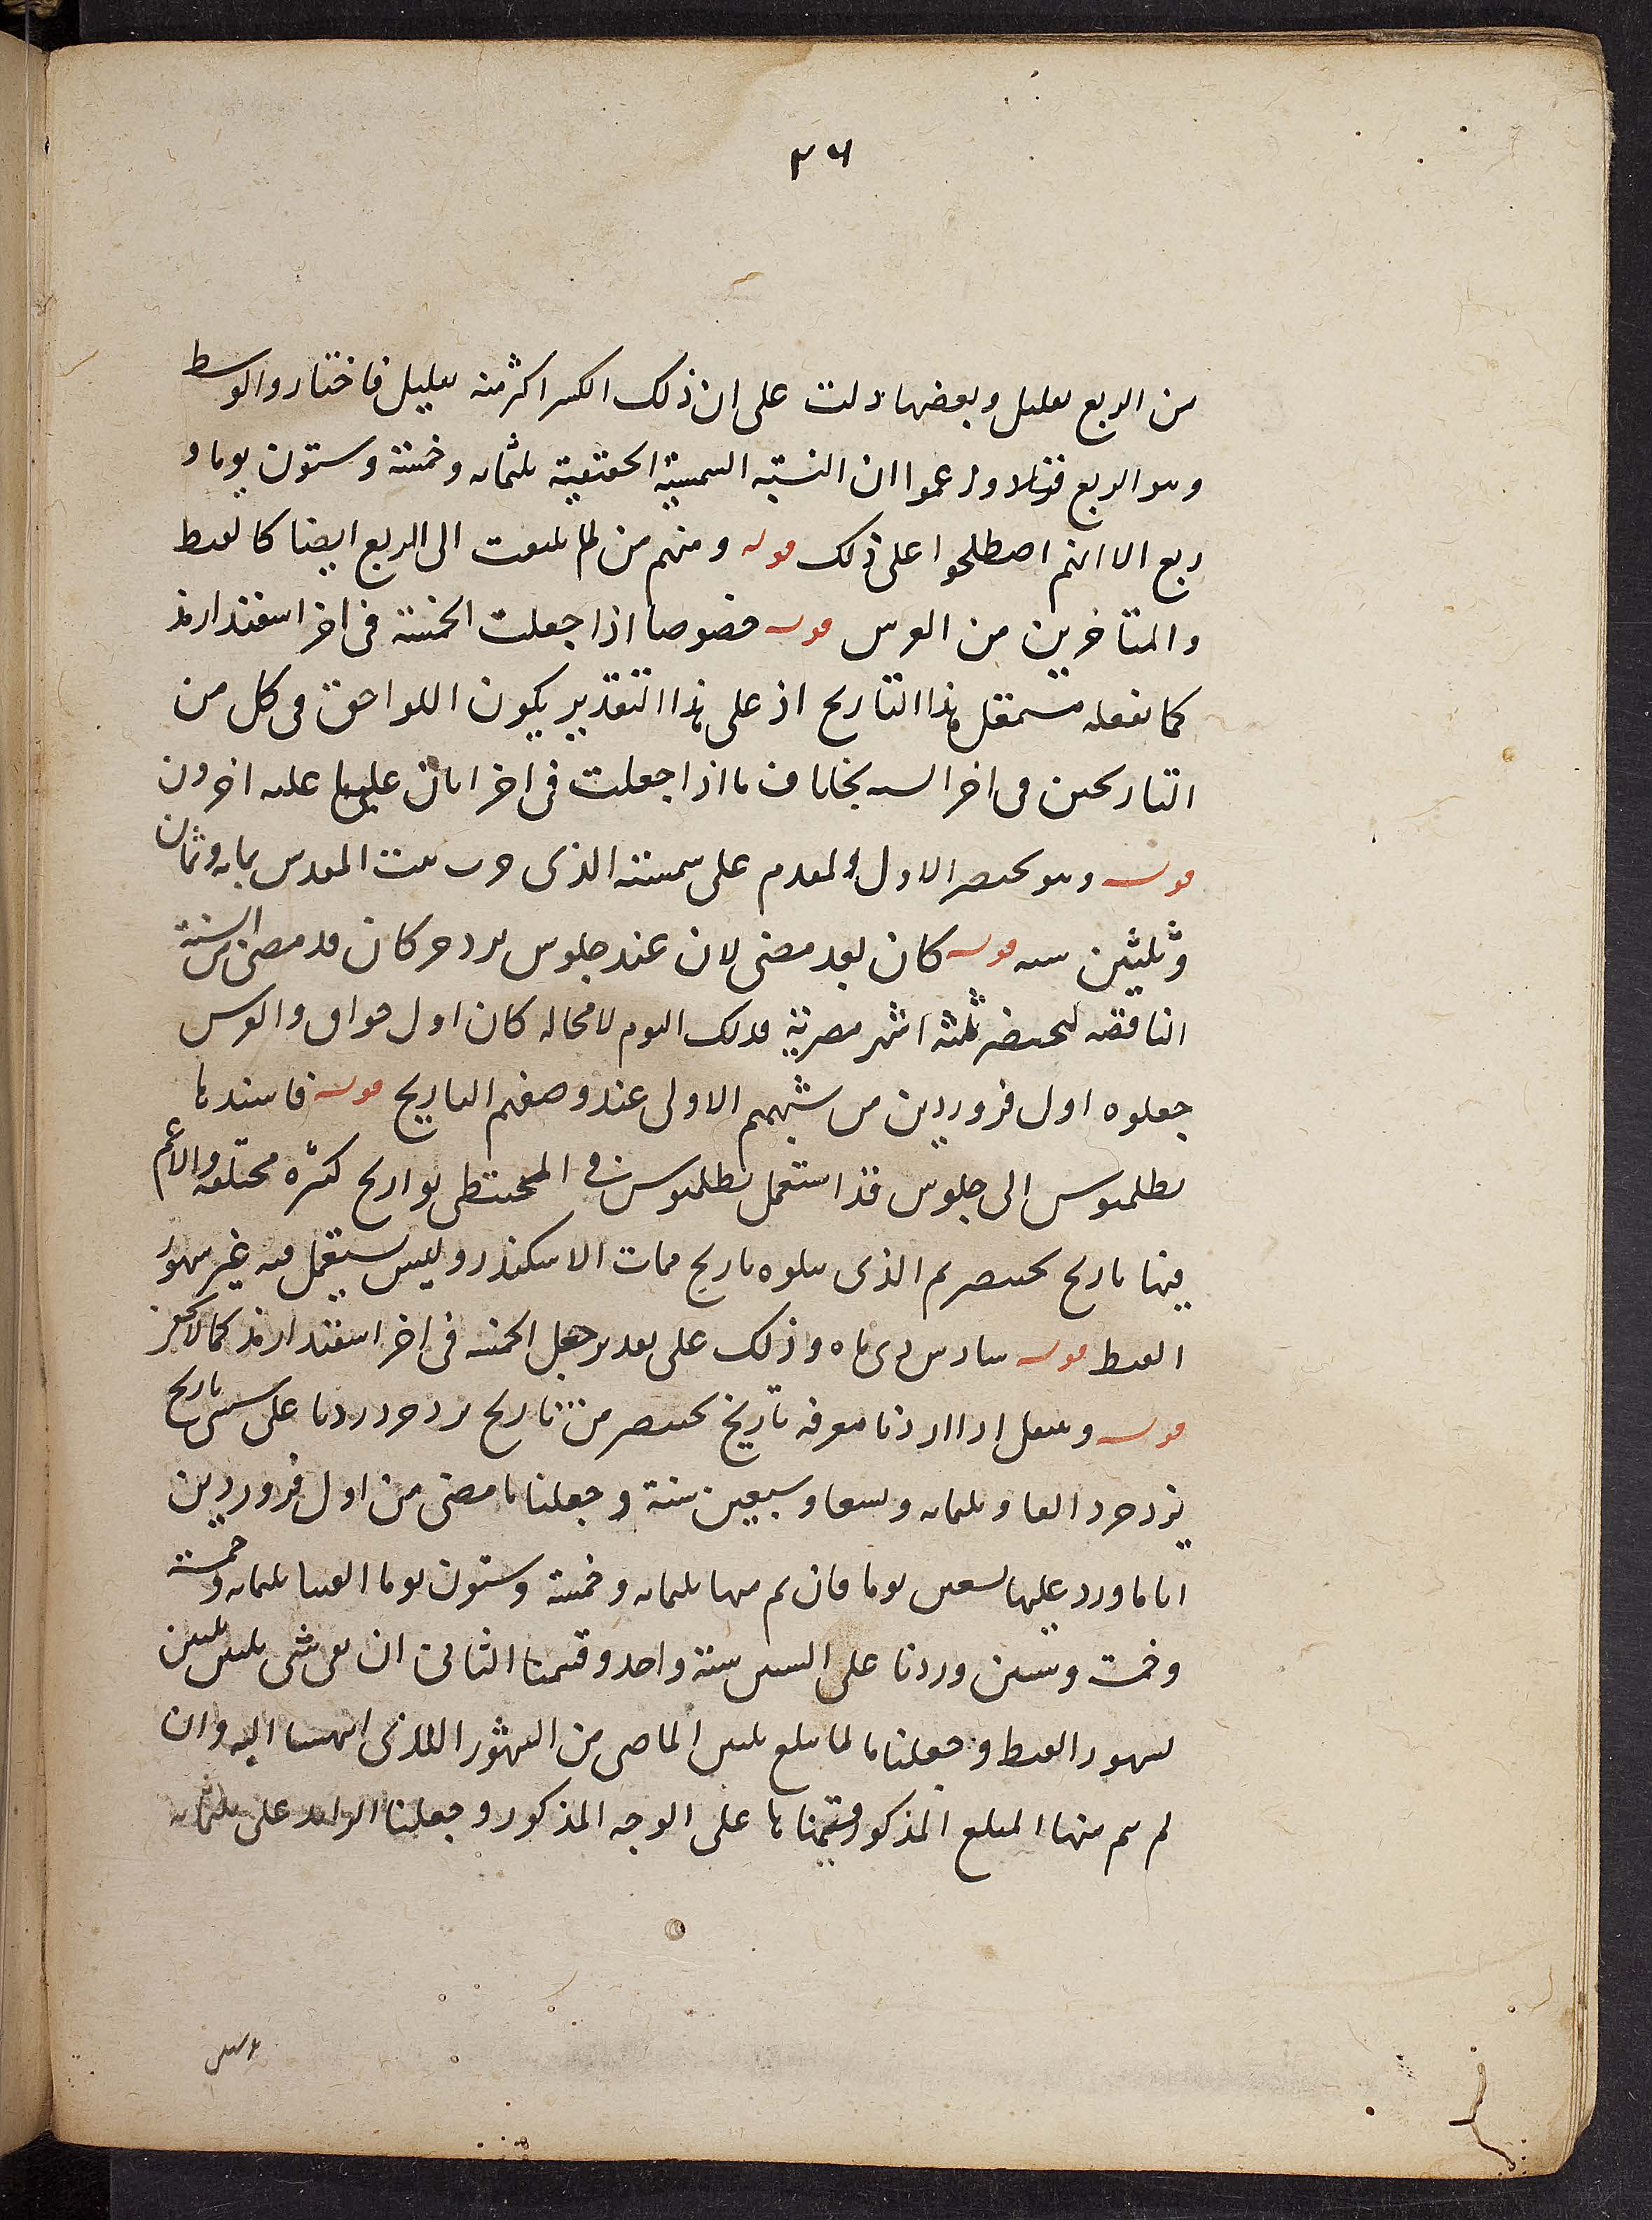 ٢٦
من الربع بقليل وبعضها دلت على ان ذلك الكسر اكثر منه بقليل فاختاروا الوسط
وهو الربع فهؤلاء زعموا ان السنة الشمسية الحقيقية ثلثمائه وخمسة وستون يوما و
ربع الا انهم اصطلحوا على ذلك قوله ومنهم من لم يلتفت الى الربع ايضا كالقبط
والمتاخرين من الفرس قوله خصوصا اذا جعلت الخمسة فى اخر اسفندارمذ
كما يفعله مستعمل هذا التاريخ اذ على هذا التقدير يكون اللواحق فى كل من
التاريخين فى اخر السنه بخلاف ما اذا جعلت فى اخر ابان عليها عليه اخرون
قوله وهو بختنصر الاول المقدم على سميه الذى خرب بيت المقدس بمايه وثمان
وثلثين سنه قوله كان بعد مضى لان عند جلوس يزدجرد كان قد مضى من السنة
الناقصه لبختنصر ثلثة اشهر مصرية فذلك اليوم لا محاله كان اول والفرس
جعلوه اول فروردين من سنتهم الاولى عند وضعهم التاريخ قوله فاسندها
بطلميوس الى جلوس قد استعمل بطلميوس فى المجسطى تواريخ كثيره مختلفه والاعم
فيها تاريخ بختنصر ثم الذى يتلوه تاريخ ممات الاسكندر وليس يستعمل فيه غير شهور
القبط قوله سادس دى ماه وذلك على تقدير جعل الخمسه فى اخر اسفندارمذ كما لا يخفى
قوله ونقول اذا اردنا معرفه تاريخ بختنصر من تاريخ يزدجرد زدنا على سنى تاريخ
يزدجرد الفا وثلثمائه وتسعا وسبعين سنة وجعلنا ما مضى من اول فروردين
اياما وزد عليها تسعين يوما فان تم منها ثلثمائه وخمسة وستون يوما القينا ثلثمائه وخمسة
وخمسة وستين وزدنا على السنين سنة واحد وقسمنا الثانى ان بقى شى ثلثين ثلثين
لشهور القبط وجعلنا ما لم يبلغ ثلثين الماضى من الشهور الذى انتهينا اليه وان
لم يتم منها المبلغ المذكور قسمناها على الوجه المذكور وجعلنا الزايد على ثلثمائه